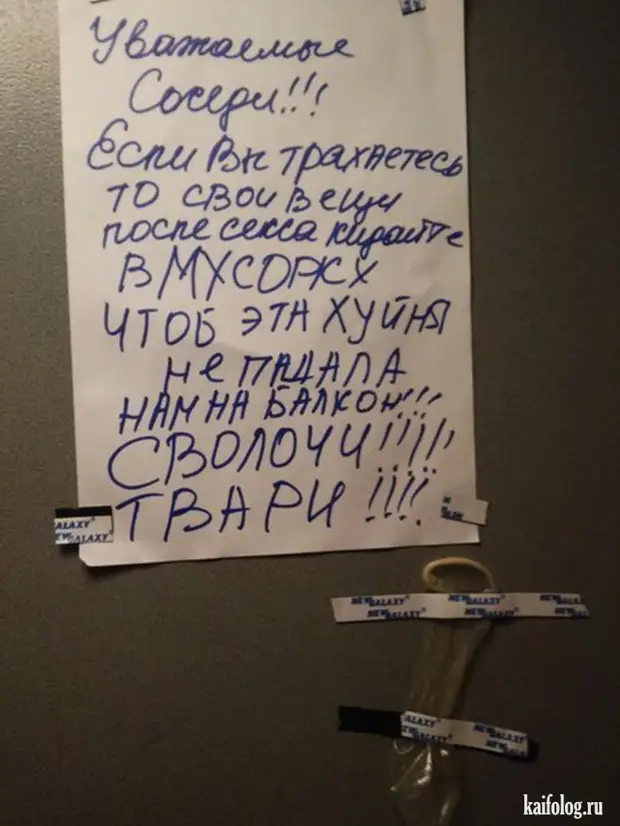 Уважаемые
Соседи!!!
Если Вы трахаетесь
то свои вещи
после секса кидайте
В МУСОРКУ
ЧТОБ ЭТА ХУЙНЯ
НЕ ПАДАЛА
НАМ НА БАЛКОН!!!
СВОЛОЧИ!!!!!
ТВАРИ!!!!
NEW GALAXY
NEW GALAXY
NEW GALAXY
NEW GALAXY
GALAXY
NEW GALAXY
GALAXY
kaifolog.ru